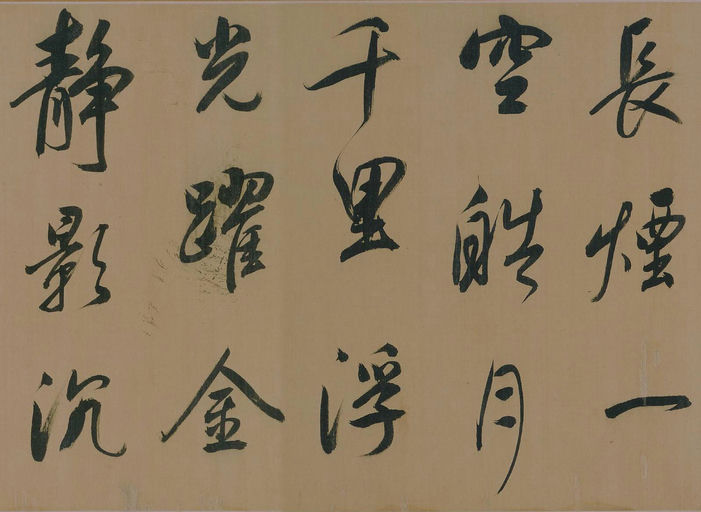 長煙一
空皓月
千里浮
光躍金
靜影沉